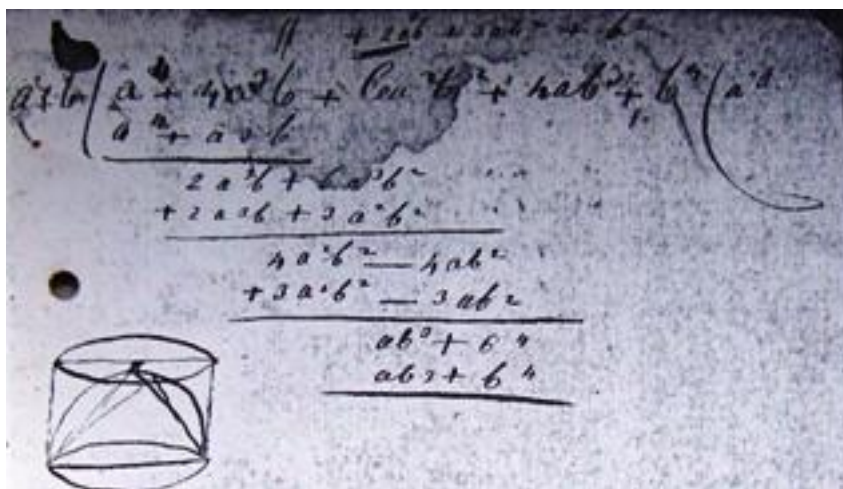 + 2ab + 3ab² + b²
a + b ( a⁴ + 4a³b + 6a²b² + 4ab³ + b⁴ ( a³
a⁴ + a3b
2a³b + 6a³b²
+ 2a3b + 3a²b²
4a²b² — 4ab²
+ 3a²b² — 3ab2
ab³ + b4
ab3 + b4